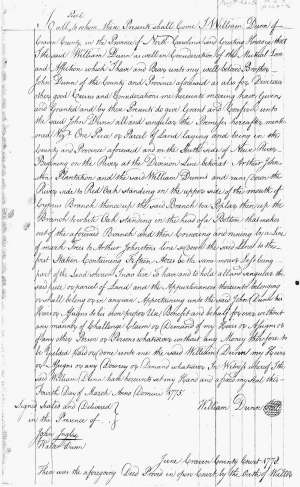 To all to whom these Presents shall Come I William Dunn of
Craven County in the Province of North Carolina send Greeting Know ye that
I the said William Dunn as well in Consideration of the Natural Love
and Affection which I have and Bear unto my well beloved Brother
John Dunn of the County and Province aforesaid as also for Diverse
other good Causes and Considerations me hereunto moving have Given
and Granted and by these Presents do give Grant and Confirm unto
the said John Dunn all and singular the Premises hereafter mentioned
One Piece or Parcel of Land laying and being in the
County and Province aforesaid and on the South side of River
Begining on the River at the Division Line between Arthur Johnston
Plantation and the said William Dunn and runs down the
River side to Red Oak standing in the upper side of the mouth of
Cyprus Branch thence up the said Branch to a Poplar thence up the
Branch to white Oak standing in the head of a Bottom that makes
out of the aforesaid Branch and then Crossing and runing by a Line
of mark Trees to Arthur Johnstons line along the said Line to the
first Station Containing Fifteen Acres be the same more or less being
part of the Land whereon I now live To have and to hold all and singular the
said piece or parcel of Land and the Appurtenances thereunto belonging
or shall belong or in anywise Appertaining unto the said John Dunn his
Heirs or Assigns to his own proper Use Benefit and behalf for ever without
any manner of Challenge Claim or Demand of my Heirs or Assigns or
any other Person or Persons whatsoever without any Money therefore to
be yielded paid or done unto me the said William Dunn my Heirs
or Assigns or any Person or Demand whatsoever In Witness whereof I the
said William Dunn hath hereunto set my Hand and affixed my Seal this
Fourth Day of March Anno Domini 1775
William Dunn
Signed Sealed and Delivered
in the Presence of
John
Walter Dunn
June Craven County Court 1778
Then was the aforegoing Deed Proved in open Court by the Oath of Walter